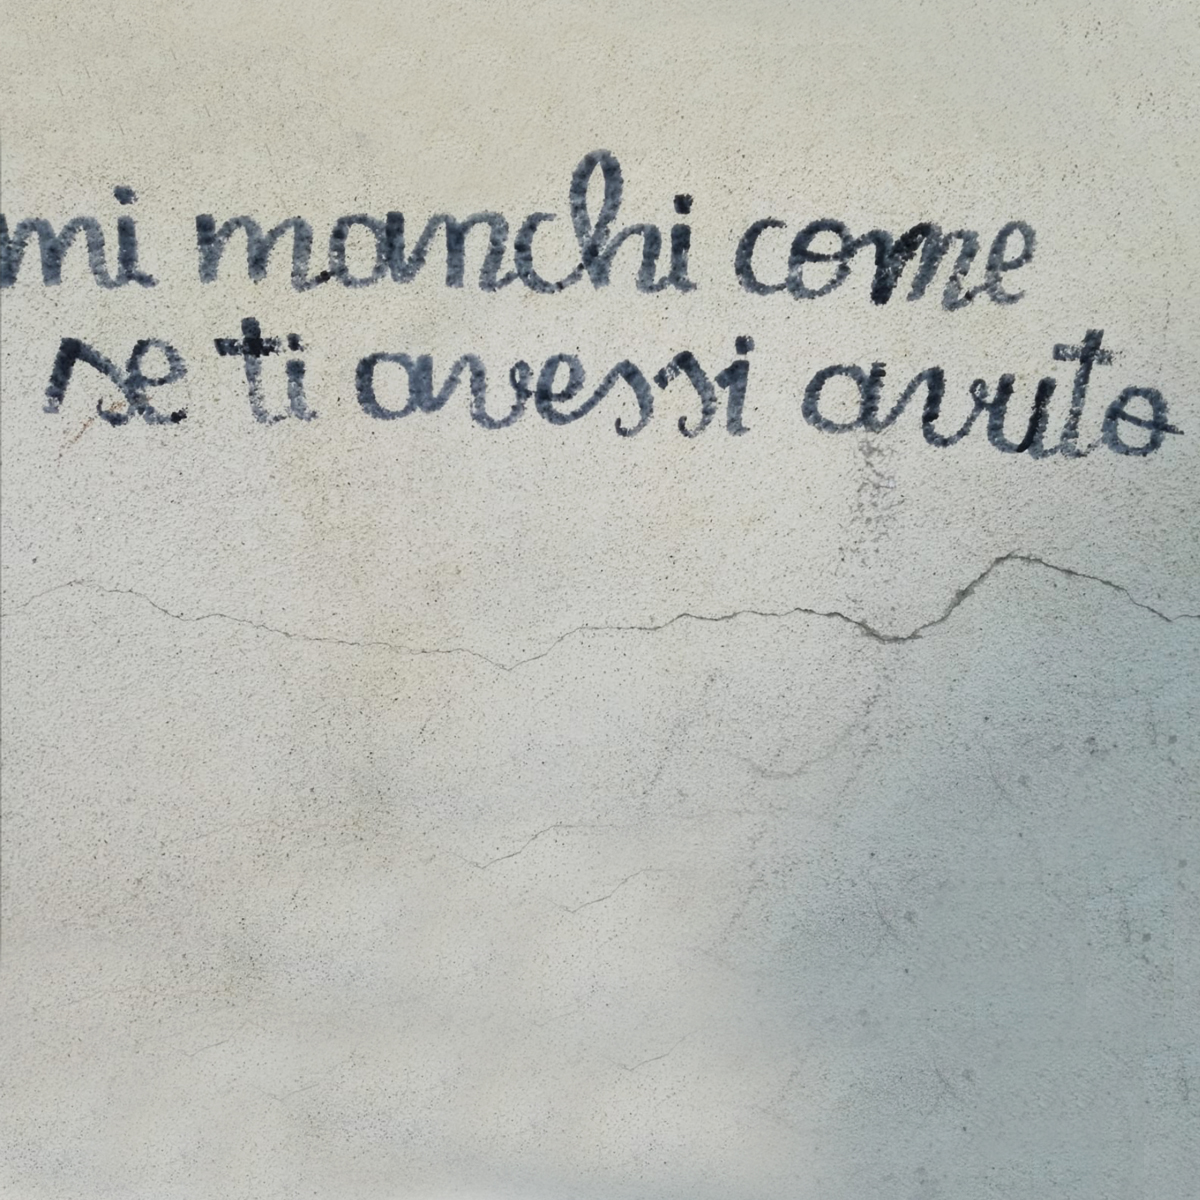 mi manchi come
se ti avessi avuto